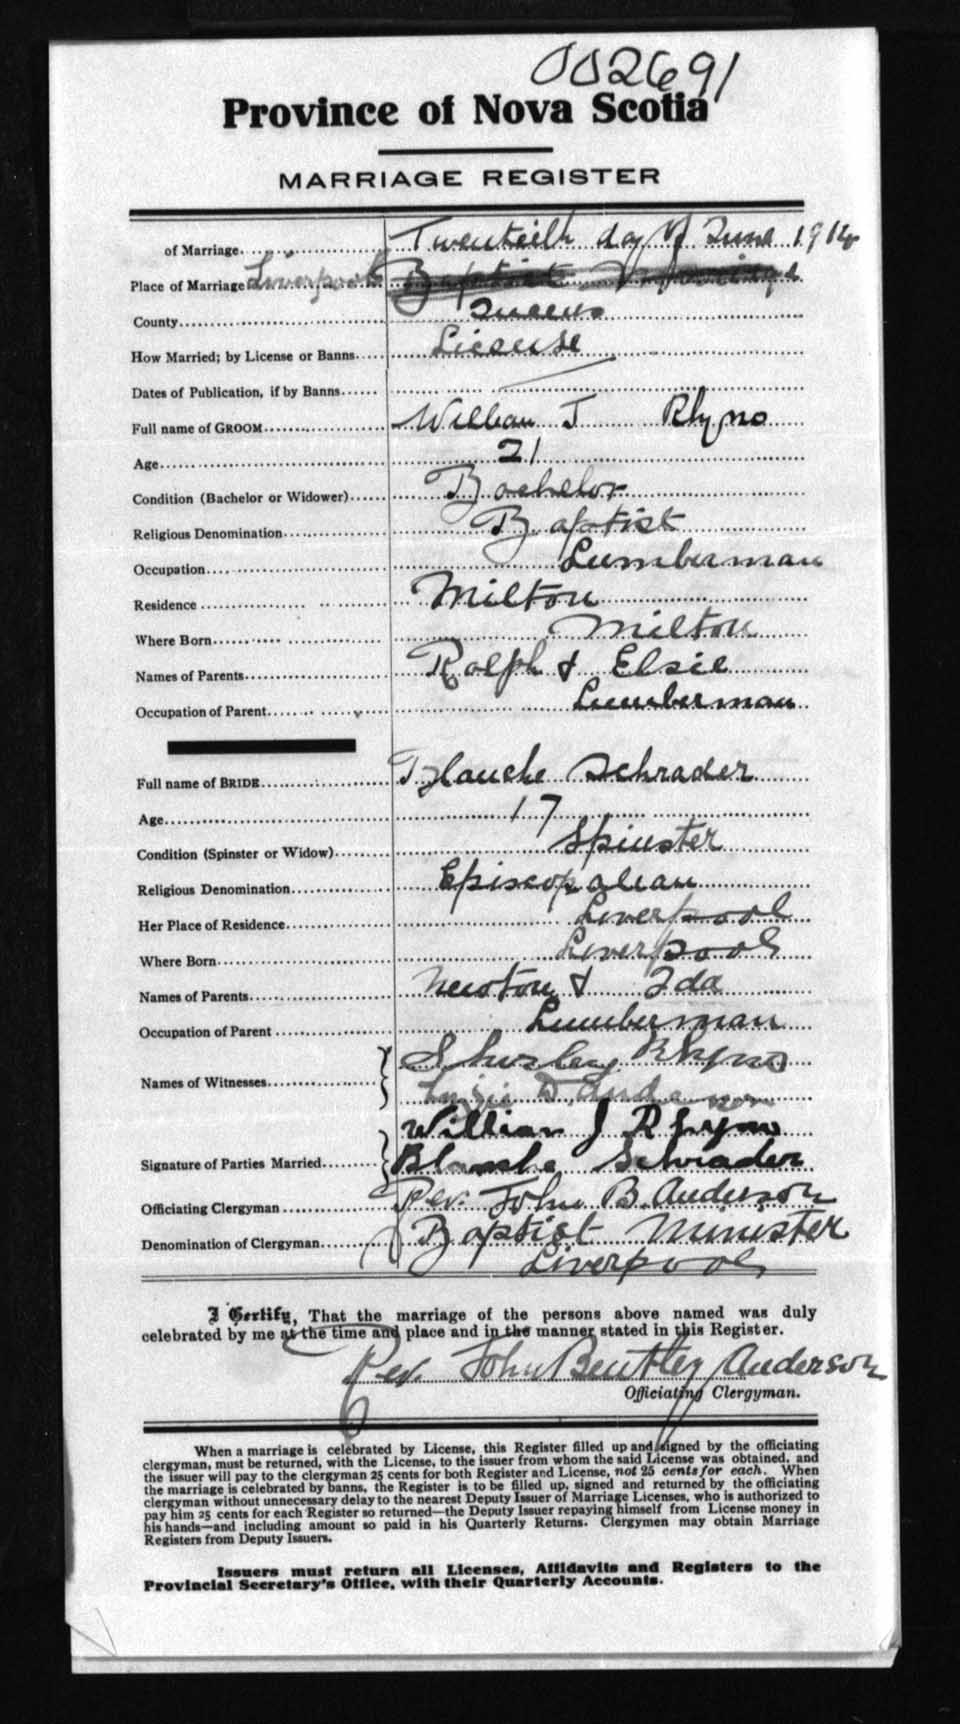 002691
Province of Nova Scotia
MARRIAGE REGISTER
of Marriage Twentieth day of June 1914
Place of Marriage Liverpool Baptist Parsonage
County Queens
How Married; by License or Banns License
Dates of Publication, if by Banns
Full name of GROOM William J Rhyno
Age 21
Condition (Bachelor or Widower) Bachelor
Religious Denomination Baptist
Occupation Lumberman
Residence Milton
Where Born Milton
Names of Parents Ralph & Elsie
Occupation of Parent Lumberman
Full name of BRIDE Blanche Schrader
Age 17
Condition (Spinster or Widow) Spinster
Religious Denomination Episcopalean
Her Place of Residence Liverpool
Where Born Liverpool
Names of Parents Newton & Ida
Occupation of Parent Lumberman
Names of Witnesses Shurley Rhyno
Lizzie D Anderson
Signature of Parties Married William J Rhyno
Blanche Schrader
Officiating Clergyman Rev. John B. Anderson
Denomination of Clergyman Baptist Minister
Liverpool
I Certify, That the marriage of the persons above named was duly
celebrated by me at the time and place and in the manner stated in this Register.
Rev. John Bentley Anderson
Officiating Clergyman.
When a marriage is celebrated by License, this Register filled up and signed by the officiating
clergyman, must be returned, with the License, to the issuer from whom the said License was obtained, and
the issuer will pay to the clergyman 25 cents for both Register and License, not 25 cents for each. When
the marriage is celebrated by banns, the Register is to be filled up, signed and returned by the officiating
clergyman without unnecessary delay to the nearest Deputy Issuer of Marriage Licenses, who is authorized to
pay him 25 cents for each Register so returned—the Deputy Issuer repaying himself from License money in
his hands—and including amount so paid in his Quarterly Returns. Clergymen may obtain Marriage
Registers from Deputy Issuers.
Issuers must return all Licenses, Affidavits and Registers to the
Provincial Secretary's Office, with their Quarterly Accounts.